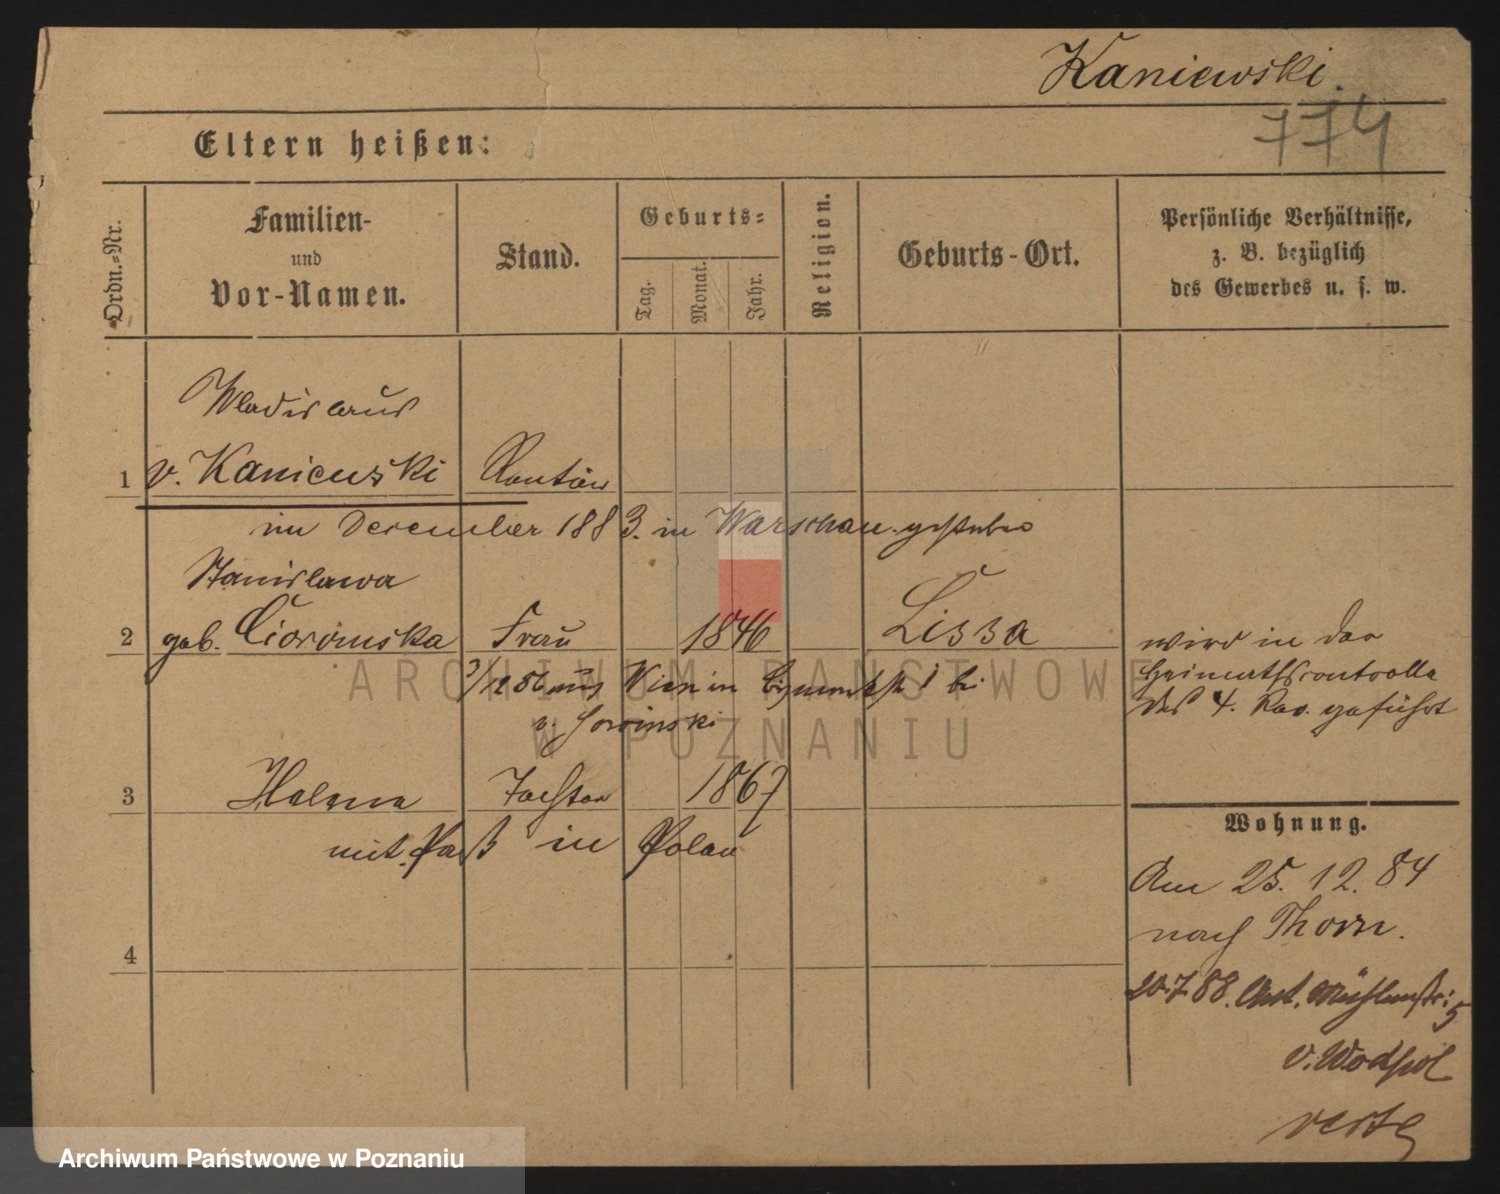 Kaniewski.
774
Eltern heißen:
Ordn.-Nr.
Familien-
und
Vor-Namen.
Stand.
Geburts-
Tag.
Monat.
Jahr.
Religion.
Geburts-Ort.
Persönliche Verhältnisse,
z. B. bezüglich
des Gewerbes u. s. w.
Wladislaus
1 v. Kaniewski Rentier
im December 1883. in Warschau gestorben
Stanislawa
2 geb. Frau 1846 Lissa
wird in der
Heimathscontrolle
des 4. Rev. geführt
aus Wien in bei
v.
3 Helene Tochter 1867
mit Paß in Polen
4
Wohnung.
Am 25. 12. 84
nach Thorn.
20.7.88. Mühlenstr: 5
v.
verte
ARCHIWUM PAŃSTWOWE
W POZNANIU
Archiwum Państwowe w Poznaniu